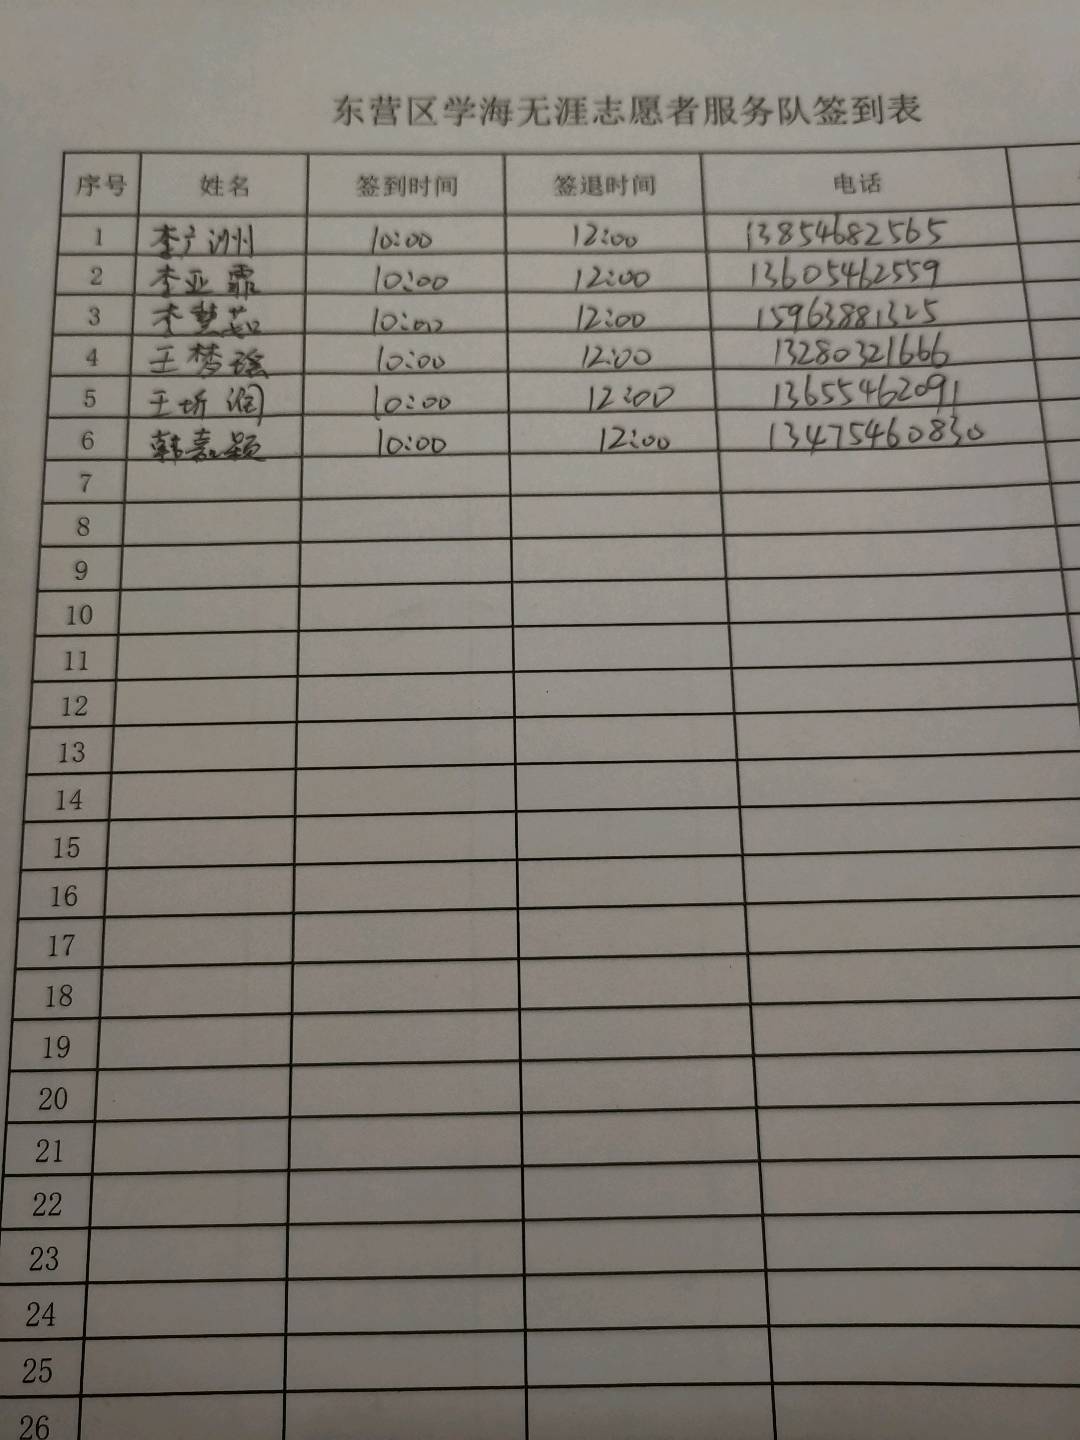 东营区学海无涯志愿者服务队签到表
序号 姓名 签到时间 签退时间 电话
1 李广洲 10:00 12:00 13854682565
2 李亚霏 10:00 12:00 13605462559
3 李慧茹 10:00 12:00 15963881325
4 王梦瑶 10:00 12:00 13280321666
5 王圻润 10:00 12:00 13655462091
6 韩嘉颖 10:00 12:00 13475460830
7
8
9
10
11
12
13
14
15
16
17
18
19
20
21
22
23
24
25
26